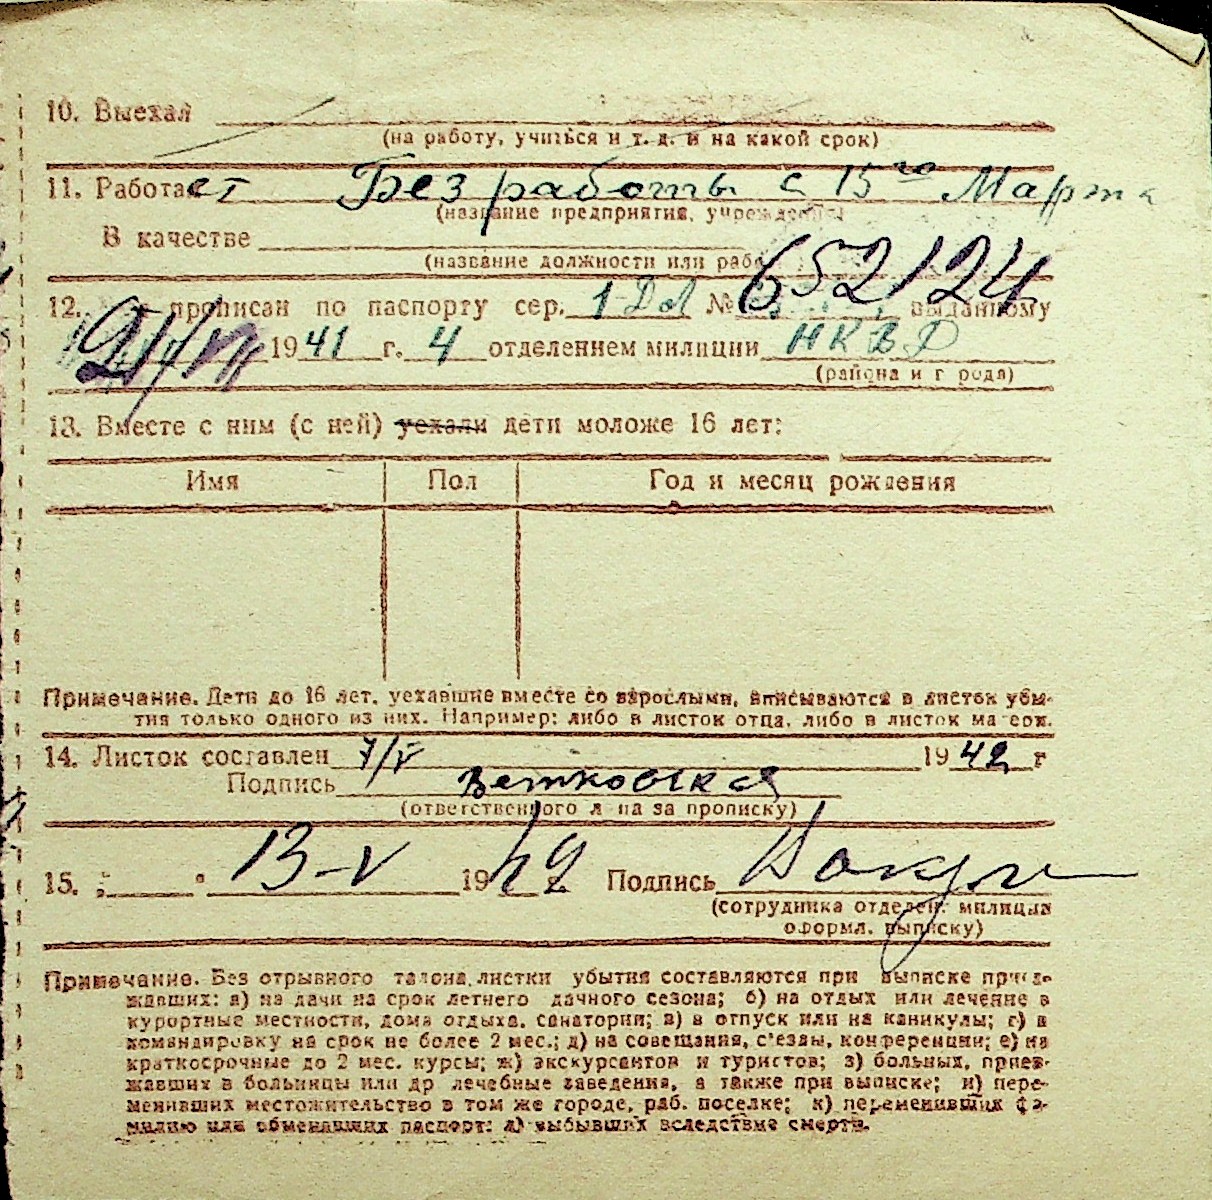 10. Выехал
(на работу, учиться и т. д. и на какой срок)
11. Работает Без работы с 15го Марта
(название предприятия, учреждения)
В качестве
(название должности или раб
12. прописан по паспорту сер. 1-ДЛ № 652124 выданному
1941 г. 4 отделением милиции НКВД
(района и г рода)
13. Вместе с ним (с ней) уехали дети моложе 16 лет:
Имя Пол Год и месяц рождения
Примечание. Дети до 16 лет, уехавшие вместе со взрослыми, вписываются в листок убы-
тия только одного из них. Например: либо в листок отца, либо в листок ма ери.
14. Листок составлен 7/V 1942 г
Подпись Ветковская
(ответственного л ца за прописку)
15. " " 13-V 1942 Подпись
(сотрудника отделен. милиции
оформл. выписку)
Примечание. Без отрывного талона листки убытия составляются при выписке приез-
жавших: а) на дачи на срок летнего дачного сезона; б) на отдых или лечение в
курортные местности, дома отдыха, санатории; в) в отпуск или на каникулы; г) в
командировку на срок не более 2 мес.; д) на совещания, с'езды, конференции; е) на
краткосрочные до 2 мес. курсы; ж) экскурсантов и туристов; з) больных, приез-
жавших в больницы или др лечебные заведения, а также при выписке; и) пере-
менивших местожительство в том же городе, раб. поселке; к) переменивших фа-
милию или обменявших паспорт: л) выбывших вследствие смерти.